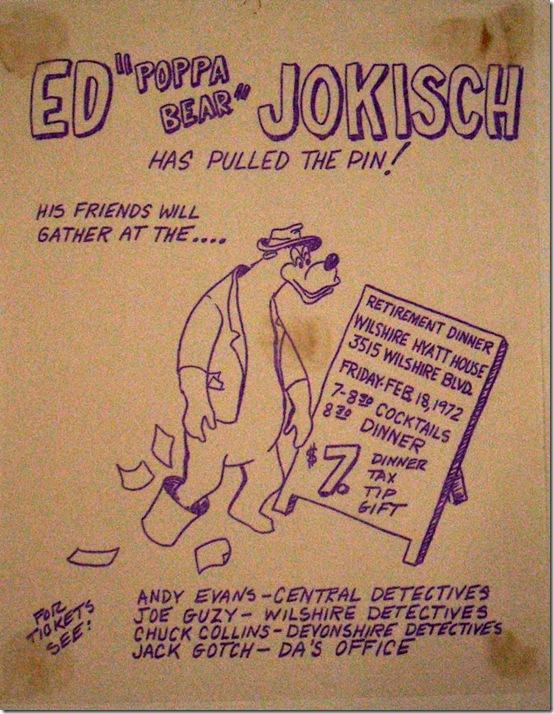 ED "POPPA BEAR" JOKISCH
HAS PULLED THE PIN!
HIS FRIENDS WILL
GATHER AT THE....
RETIREMENT DINNER
WILSHIRE HYATT HOUSE
3515 WILSHIRE BLVD.
FRIDAY-FEB. 18, 1972
7-8:30 COCKTAILS
8:30 DINNER
$7. DINNER
TAX
TIP
GIFT
FOR
TICKETS
SEE:
ANDY EVANS - CENTRAL DETECTIVES
JOE GUZY - WILSHIRE DETECTIVES
CHUCK COLLINS - DEVONSHIRE DETECTIVES
JACK GOTCH - DA'S OFFICE